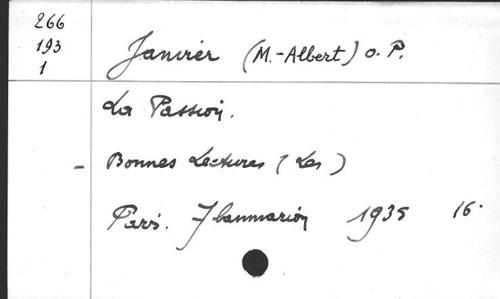 266
193
1
Janvier (M.-Albert) O. P.
La Passion.
- Bonnes Lectures (Les)
Paris. Flammarion 1935 16.